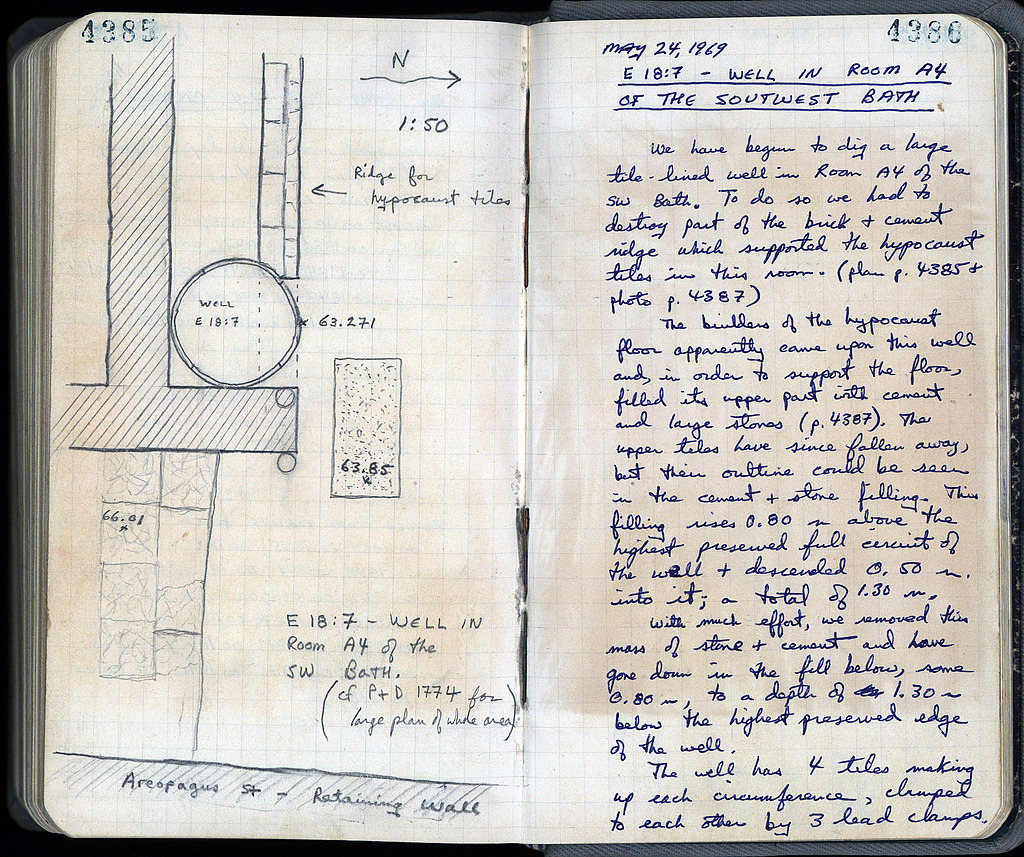 4385
N
1:50
Ridge for
hypocaust tiles
WELL
E 18:7
63.271
63.85
66.01
E 18:7 - WELL IN
Room A4 of the
SW BATH.
(cf P+D 1774 for
large plan of whole area)
Areopagus St - Retaining Wall
4386
MAY 24, 1969
E 18:7 - WELL IN ROOM A4
OF THE SOUTWEST BATH
We have begun to dig a large
tile-lined well in Room A4 of the
SW Bath. To do so we had to
destroy part of the brick + cement
ridge which supported the hypocaust
tiles in this room. (plan p. 4385 +
photo p. 4387)
The builders of the hypocaust
floor apparently came upon this well
and, in order to support the floor,
filled its upper part with cement
and large stones (p. 4387). The
upper tiles have since fallen away,
but their outline could be seen
in the cement + stone filling. This
filling rises 0.80 m above the
highest preserved full circuit of
the well + descended 0.50 m.
into it; a total of 1.30 m.
With much effort, we removed this
mass of stone + cement and have
gone down in the fill below, some
0.80 m, to a depth of 1.30 m
below the highest preserved edge
of the well.
The well has 4 tiles making
up each circumference, clamped
to each other by 3 lead clamps.